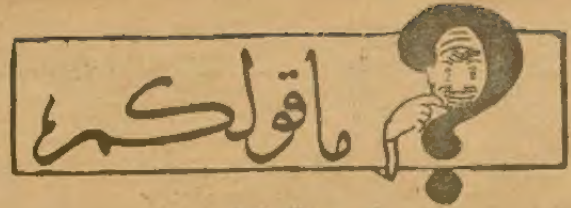 ? ما قولكم